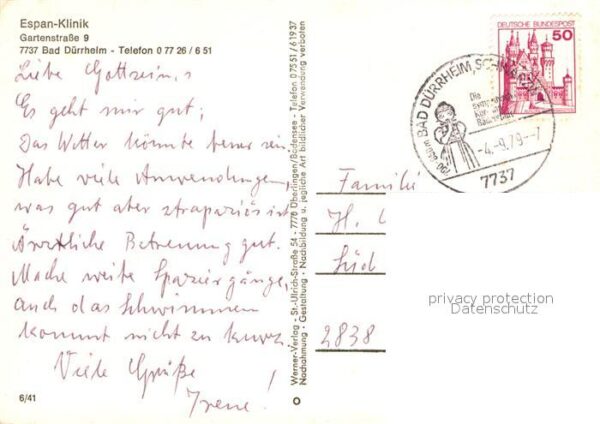 Espan-Klinik
Gartenstraße 9
7737 Bad Dürrheim - Telefon 0 77 26 / 6 51
Liebe Gottreins,
Es geht mir gut;
Das Wetter könnte besser sein
Habe viele Anwendungen
was gut aber strapaziös ist
Ärztliche Betreuung gut.
Mache weite Spaziergänge,
auch das Schwimmen
kommt nicht zu kurz.
Viele Grüße
Irene!
6/41
Werner-Verlag - St.-Ulrich-Straße 54 - 7776 Überlingen/Bodensee - Telefon 0 75 51 / 6 19 37
Nachahmung - Gestaltung - Nachbildung u. jegliche Art bildlicher Verwendung verboten
DEUTSCHE BUNDESPOST
50
BAD DÜRRHEIM, SCHWARZW
Die
-4.-9.79--7
7737
Familie
H.
Süd
2838
privacy protection
Datenschutz